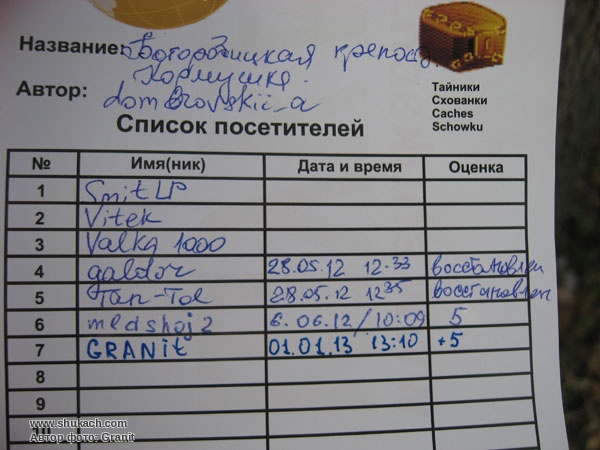 Название: Богородицкая крепость.
Кормушка.
Автор: dombrovskii_a
Тайники
Схованки
Caches
Schowku
Список посетителей
№ Имя(ник) Дата и время Оценка
1 SmitLP
2 Vitek
3 Valka 1000
4 galdor 28.05.12 12.33 восстановлен
5 Tan-Tol 28.05.12 12 35 восстановлен
6 medshoj2 6.06.12/10:09 5
7 GRANit 01.01.13 13:10 +5
8
9
10
www.shukach.com
Автор фото: Granit